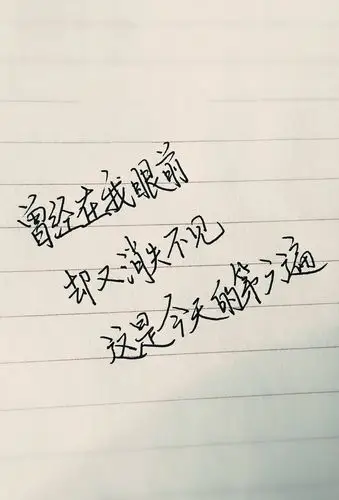 曾经在我眼前
却又消失不见
这是今天的第六遍